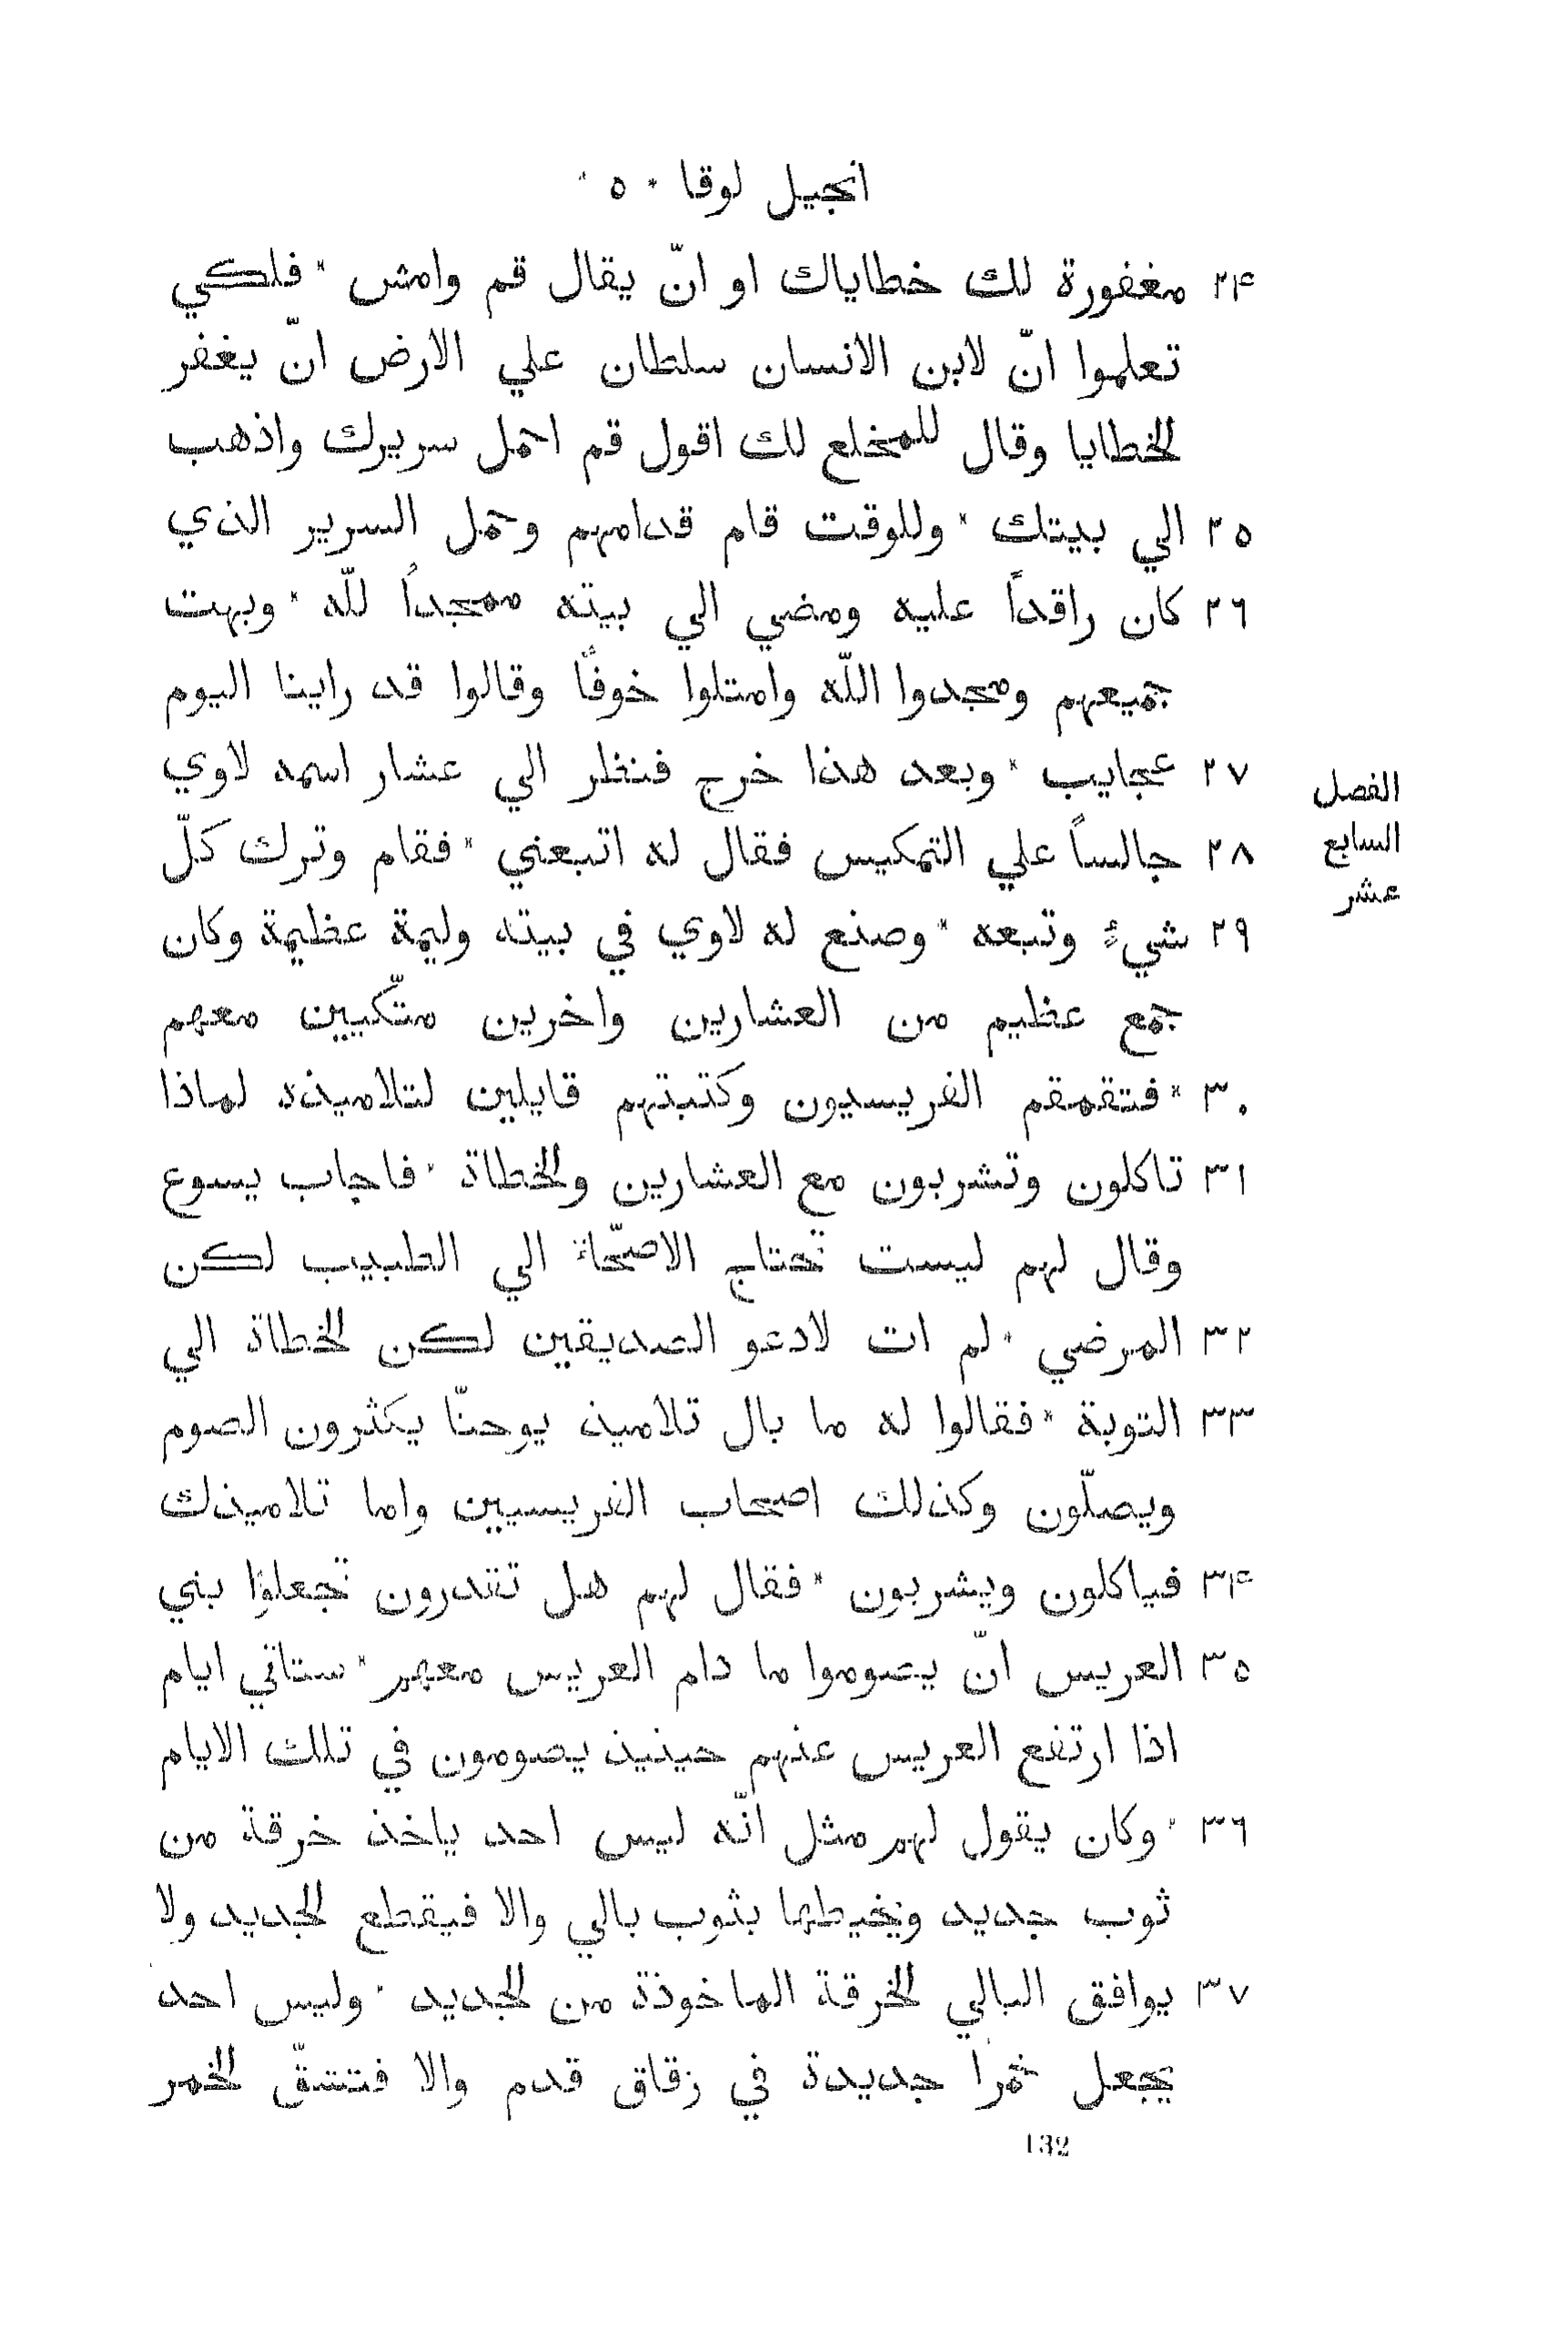 انجيل لوقا * ٥ *
٢٤ مغفورة لك خطاياك او انّ يقال قم وامش * فلكي
تعلموا انّ لابن الانسان سلطان علي الارض انّ يغفر
الخطايا وقال للمخلع لك اقول قم احمل سريرك واذهب
٢٥ الي بيتك * وللوقت قام قدامهم وحمل السرير الذي
٢٦ كان راقداً عليه ومضي الي بيته ممجداً للّه * وبهت
جميعهم ومجدوا اللّه وامتلوا خوفاً وقالوا قد راينا اليوم
٢٧ عجايب * وبعد هذا خرج فنظر الي عشار اسمه لاوي
الفصل
السابع
عشر
٢٨ جالساً علي التمكيس فقال له اتبعني * فقام وترك كلّ
٢٩ شيءٍ وتبعه * وصنع له لاوي في بيته وليمة عظيمة وكان
جمع عظيم من العشارين واخرين متّكيين معهم
٣٠ * فتقمقم الفريسيون وكتبتهم قايلين لتلاميذه لماذا
٣١ تاكلون وتشربون مع العشارين والخطاة * فاجاب يسوع
وقال لهم ليست تحتاج الاصحّاة الي الطبيب لكن
٣٢ المرضي * لم ات لادعو الصديقين لكن الخطاة الي
٣٣ التوبة * فقالوا له ما بال تلاميذ يوحنّا يكثرون الصوم
ويصلّون وكذلك اصحاب الفريسيين واما تلاميذك
٣٤ فياكلون ويشربون * فقال لهم هل تقدرون تجعلوا بني
٣٥ العريس انّ يصوموا ما دام العريس معهم * ستاتي ايام
اذا ارتفع العريس عنهم حينيذ يصومون في تلك الايام
٣٦ * وكان يقول لهم مثل انّه ليس احد ياخذ خرقة من
ثوب جديد ويخيطها بثوب بالي والا فيقطع الجديد ولا
٣٧ يوافق البالي الخرقة الماخوذة من الجديد * وليس احد
يجعل خمرا جديدة في زقاق قدم والا فتنشقّ الخمر
132